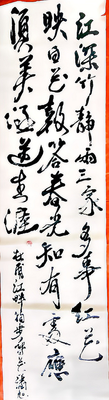 江深竹静两三家多事红花
映白花報答春光知有處應
須美酒送生涯
杜甫江畔独步尋花